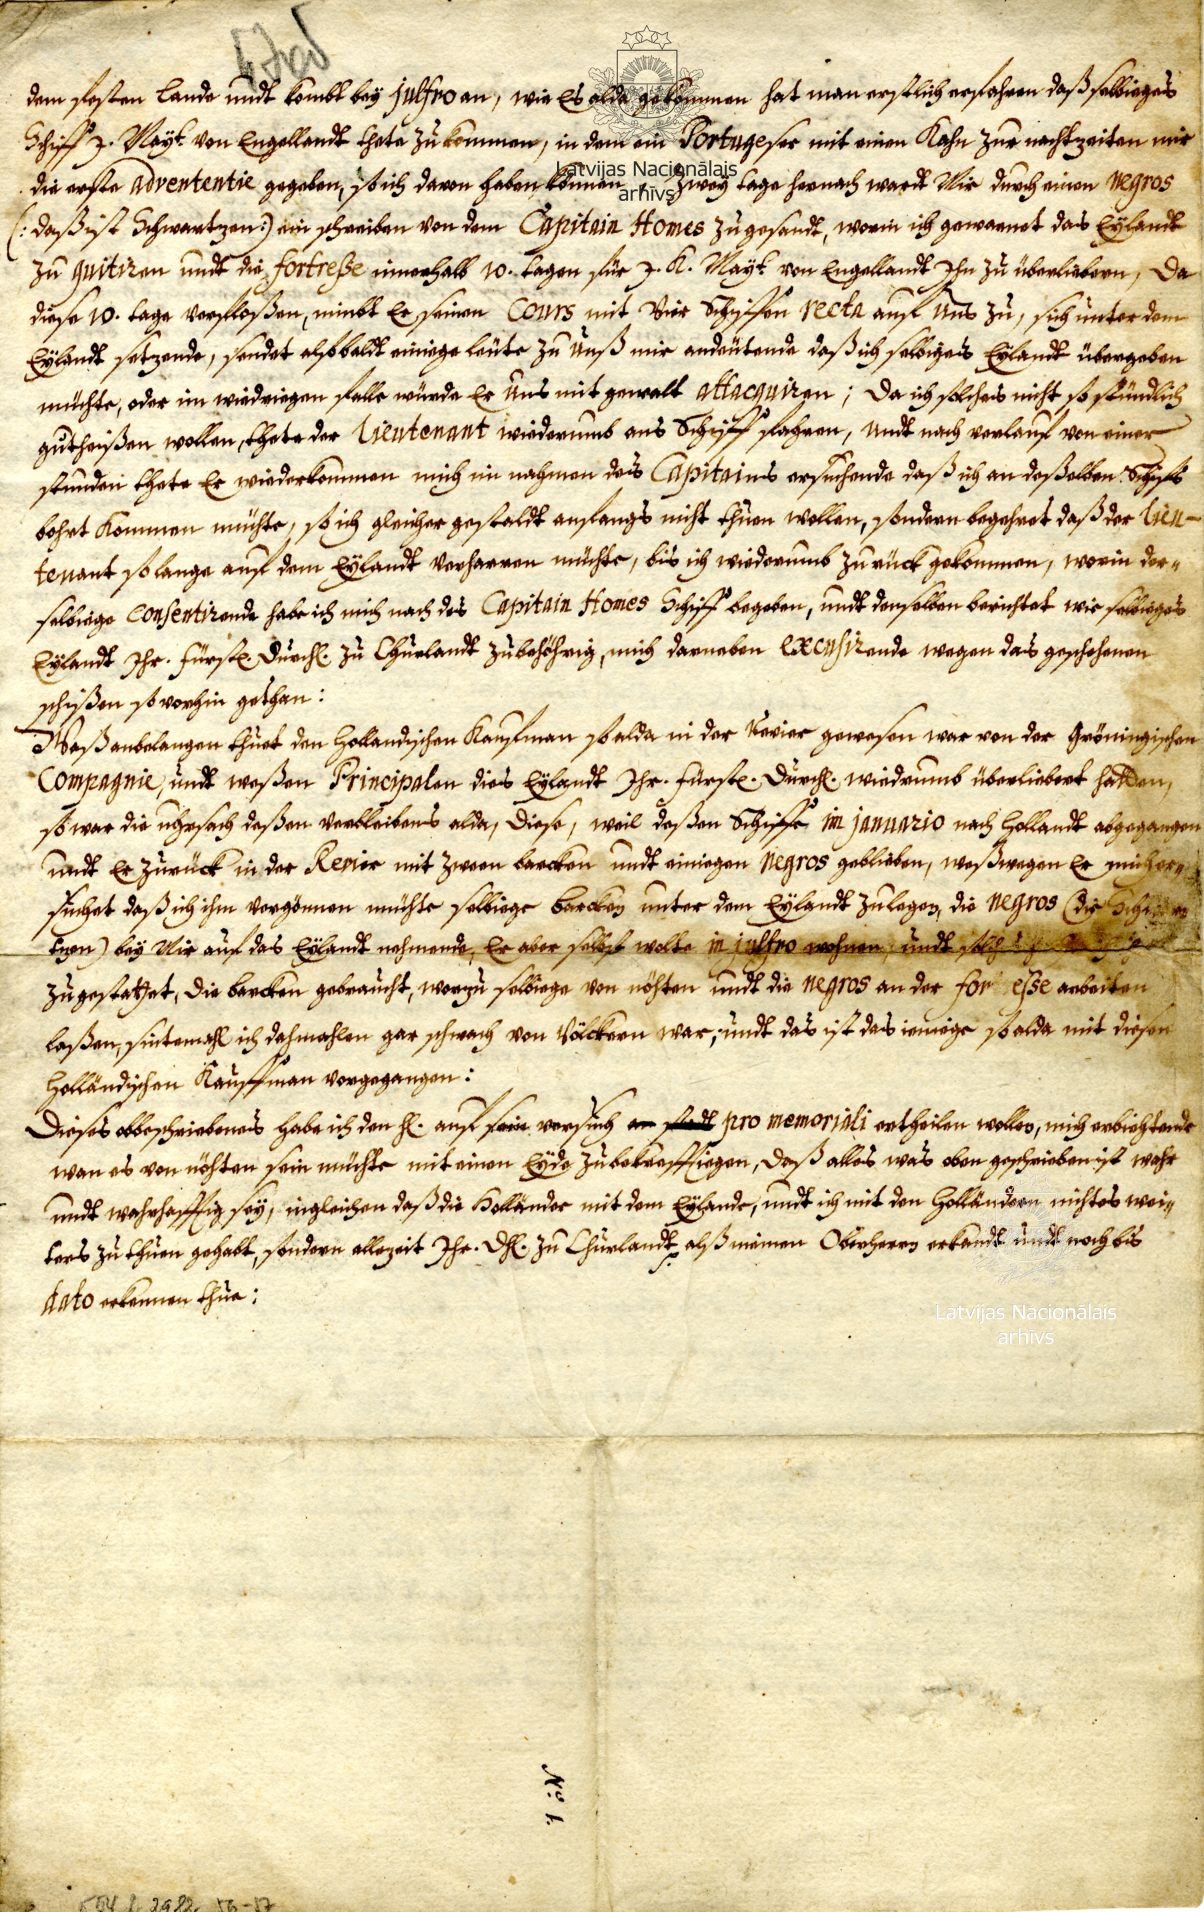 dem festen Lande undt kombt bey julfro an, wie Es alda gekommen hat man erstlich erfahren daß selbieges
Schiff J. Mayt. von Engellandt thete zukommen, in dem ein Portugeser mit einen Kahn zur nachtzeiten mir
die erste advententie gegeben, so ich davon haben können, Zwey tage hernach wardt Mir durch einen Negros
(: daß ist Schwartzen:) ein schreiben von dem Capitain Homes zugesandt, worin ich gewarnet das Eylandt
zu quitiren undt die fortreße innerhalb 10. tagen für J. K. Mayt. von Engellandt Ihn zu überliebern, Da
diese 10. tage verfloßen, nimbt Er seinen Cours mit Vier Schiffen recta auf Uns zu, sich unter dem
Eylandt setzende, sendet alßbaldt einiege leüte zu Unß mir andeütende daß ich selbiges Eylandt übergeben
müchte, oder im wiedriegen falle würde Er Uns mit gewalt attacquiren; Da ich solches nicht so stündlich
gutheißen wollen, thete der Lieutenant wiederumb ans Schiff fahren, Undt nach verlauf von einer
stunden thete Er wiederkommen mich im nahmen des Capitains ersuchende daß ich an deßelben Schifs
bohrt kommen müchte, so ich gleicher gestaldt anfangs nicht thuen wollen, sondern begehret daß der Lieu-
tenant so lange auf dem Eylandt verharren müchte, bis ich wiederumb zurück gekommen, worin der-
selbiege consentirende habe ich mich nach des Capitain Homes Schiff begeben, undt denselben berichtet wie selbieges
Eylandt Ihr. Fürstl. Durchl. zu Churlandt zubehöhrig, mich darneben excusirende wegen das geschehenen
schißen so vorhin gethan:
Waß anbelangen thuet den Hollandischen Kaufman so alda in der Revier gewesen war von der Gröningischen
Compagnie, undt weßen Principalen dies Eylandt Ihr. Fürstl. Durchl. wiedrumb überliebert hatten,
so war die uhrsach deßen verbleibens alda, Diese, weil deßen Schiffe im januario nach Hollandt abgegangen
undt Er zurück in der Revier mit zween barcken undt einiegen Negros geblieben, weßwegen Er mich er-
suchet daß ich ihm vergönnen müchte selbiege barcken unter dem Eylandt zulegen, die Negros (die Schwar
tzen) bey Mir auf das Eylandt nehmende, Er aber selbst wolte in julfro wohnen, undt
zugestattet, die barcken gebraucht, worzu selbiege von nöhten undt die Negros an der for esse arbeiten
laßen, sintemahl ich dahmahlen gar schwach von Völckern war; undt das ist das ieniege so alda mit diesen
Holländischen Kauffman vorgegangen:
Dieses obbeschriebenes habe ich den H. auf sein versuch pro memoriali ertheilen wollen, mich erbiehtende
wan es von nöhten sein müchte mit einen Eyde zubekreffliegen, Daß alles was oben geschrieben ist wahr
undt wahrhafftig sey, ingleichen daß die Holländer mit dem Eylande, undt ich mit den Holländern nichtes wei-
ters zu thuen gehabt, sondern allezeit Ihr. Dl. zu Churlandt alß meinen Oberherrn erkandt undt noch bis
dato erkennen thue:
No 1.
Latvijas Nacionālais
arhīvs
Latvijas Nacionālais
arhīvs